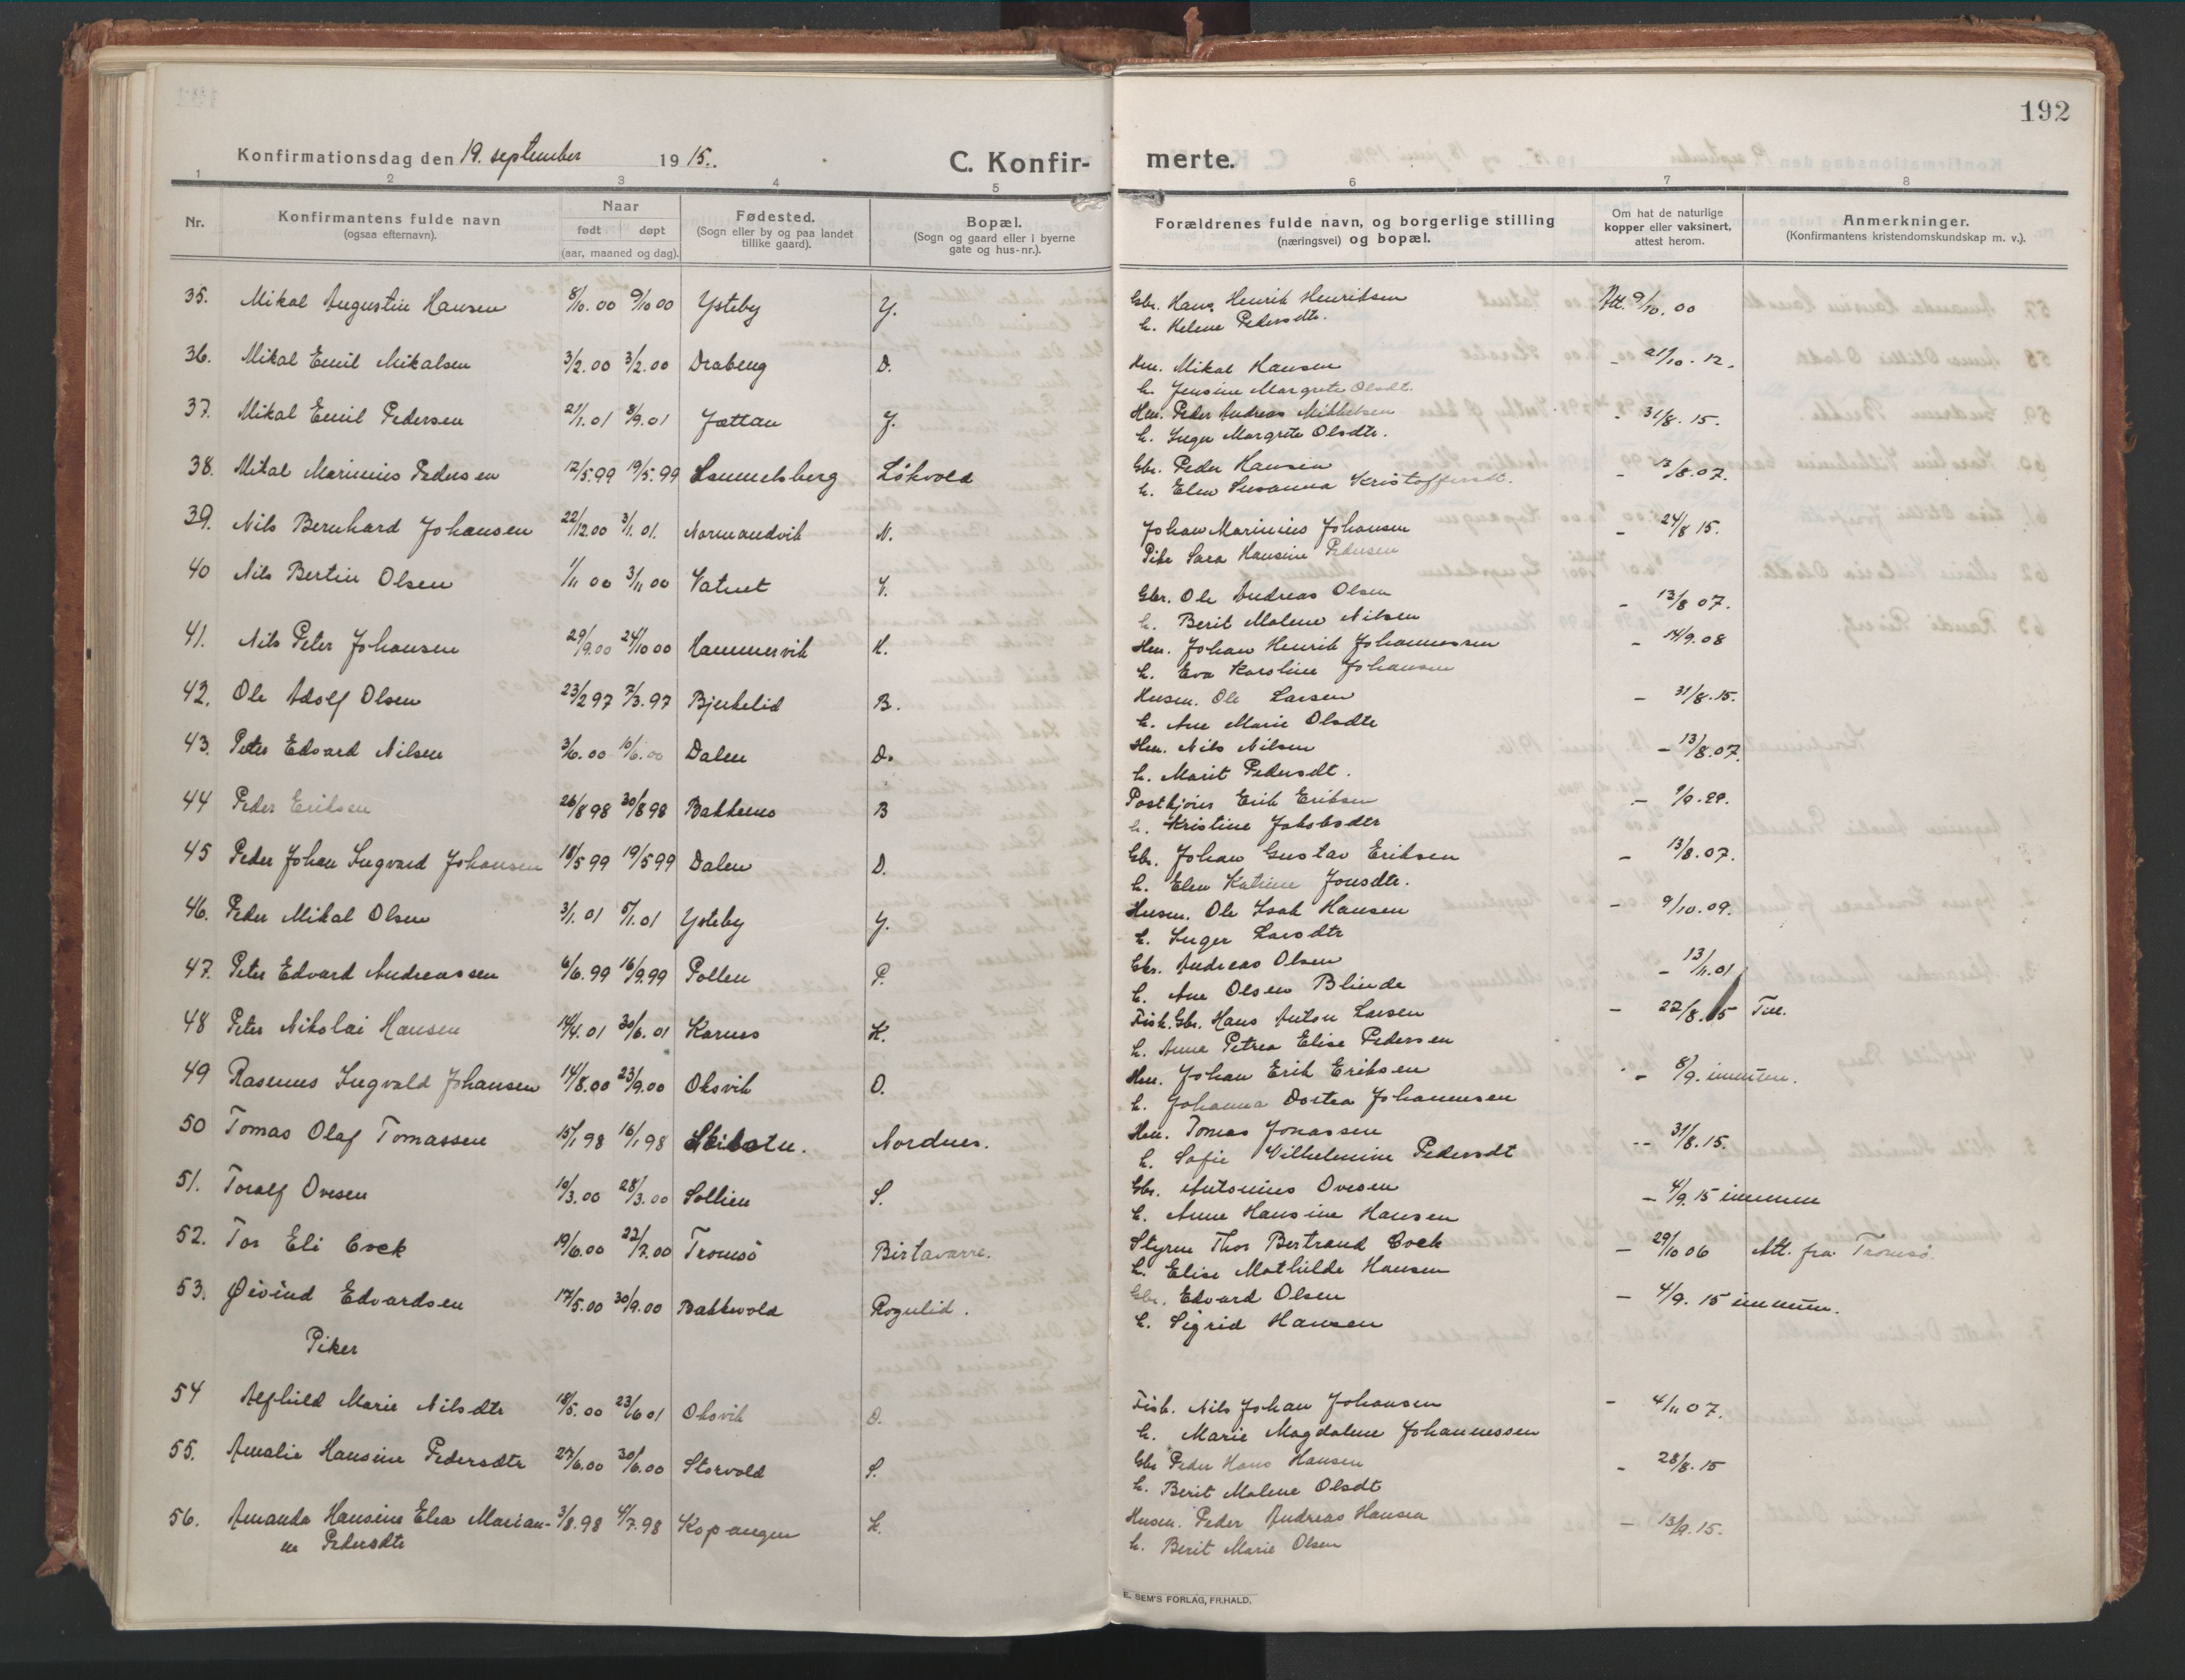 192
Konfirmationsdag den 19. september 1915.
C. Konfir- merte.
1 2 3 4 5 6 7 8
Nr.
Konfirmantens fulde navn
(ogsaa efternavn).
Naar
født døpt
(aar, maaned og dag).
Fødested.
(Sogn eller by og paa landet
tillike gaard).
Bopæl.
(Sogn og gaard eller i byerne
gate og hus-nr.).
Forældrenes fulde navn, og borgerlige stilling
(næringsvei) og bopæl.
Om hat de naturlige
kopper eller vaksinert,
attest herom.
Anmerkninger.
(Konfirmantens kristendomskundskap m. v.).
35. Mikal Augustin Hansen 8/10.00 9/10 00 Ysteby Y. Gbr. Hans Henrik Henriksen Att. 9/10.00
h. Helene Pedersdtr.
36. Mikal Emil Mikalsen 3/2.00 3/2.00 Drabeng D. Hm. Mikal Hansen - 21/10.12.
h. Jensine Margrete Olsdt.
37. Mikal Emil Pedersen 21/1.01 8/9.01 Jættan J. Hm. Peder Andreas Mikkelsen - 31/8.15.
h. Inger Margrete Olsdtr.
38. Mikal Marinius Pedersen 12/5.99 19/5.99 Lammelsberg Løkvold Gbr. Peder Hansen - 13/8.07.
h. Elen Susanna Kristoffersdt.
39. Nils Bernhard Johansen 22/12.00 3/1.01. Normandvik N. Johan Marinius Johansen - 24/8 15.
Pike Sara Hansine Pedersen
40 Nils Bertin Olsen 1/11 00 3/11 00 Vatnet V. Gbr. Ole Andreas Olsen - 13/8 07.
h. Berit Malene Nilsen
41. Nils Peter Johansen 29/9.00 24/10 00 Hammervik H. Hm. Johan Henrik Johannessen - 14/9.08
h. Eva Karoline Johansen
42. Ole Adolf Olsen 23/2 97 7/3.97 Bjerkelid B. Husm. Ole Larsen - 31/8.15.
h. Ane Marie Olsdtr
43. Peter Edvard Nilsen 3/6.00 10/6.00 Dalen D. Hm. Nils Nilsen - 13/8.07.
h. Marit Pedersdt.
44 Peder Eriksen 26/8 98 30/8 98 Bakkemo B Postkjører Erik Eriksen - 9/9.99.
h. Kristine Jakobsdtr
45 Peder Johan Ingvard Johansen 18/5 99 19/5 99 Dalen D. Gbr. Johan Gustav Eriksen - 13/8.07.
h. Elen Katrine Jonsdtr.
46. Peder Mikal Olsen 3/1.01 5/1.01 Ysteby Y. Husm. Ole Isak Hansen - 9/10.09.
h. Inger Larsdtr
47. Peter Edvard Andreassen 6/6.99 16/9.99 Pollen P. Gbr. Andreas Olsen - 13/11.01
h. Ane Olsen Blinde
48 Peter Nikolai Hansen 14/4.01 30/6.01 Karnes K. Fisk. Gbr. Hans Anton Larsen - 22/8.15
h. Anna Petrea Elise Pedersen
49 Rasmus Ingvald Johansen 14/8.00 23/9.00 Oksvik O. Hm. Johan Erik Eriksen - 8/9. immun.
h. Johanna Dortea Johannesen
50 Tomas Olaf Tomassen 15/1 98 16/1 98 Skibotn. Nordnes. Hm. Tomas Jonassen - 31/8.15.
h. Sofie Vilhelmine Pedersdt
51. Toralf Ovesen 10/3.00 28/3.00 Sollien S. Gbr. Antonius Ovesen - 4/9.15 immun
h. Anne Hansine Hansen
52. Tor Eli Cock 19/6.00 22/7.00 Tromsö Birtavarre. Styrm Thor Bertrand Cock - 29/10 06 Att. fra Tromsö.
h. Elise Mathilde Hansen
53. Øivind Edvardsen 17/5.00 30/9.00 Bakkevold Rognlid. Gbr. Edvard Olsen - 4/9.15 immun.
h. Sigrid Hansen
Piker
54 Alfhild Marie Nilsdtr 18/5.00 23/6 01 Oksvik O. Fisk. Nils Johan Johansen - 4/11 07.
h. Marie Magdalene Johannessen
55. Amalie Hansine Pedersdtr 27/6.00 30/6.00 Storvold S. Gbr Peder Hans Hansen - 28/8.15
h. Berit Malene Olsdt
56. Amanda Hansine Elea Marian- 3/8.98 4/7.98 Kopangen K. Husm. Peder Andreas Hansen - 13/9.15.
ne Pedersdtr h. Berit Marie Olsen
E. SEM'S FORLAG, FR.HALD.